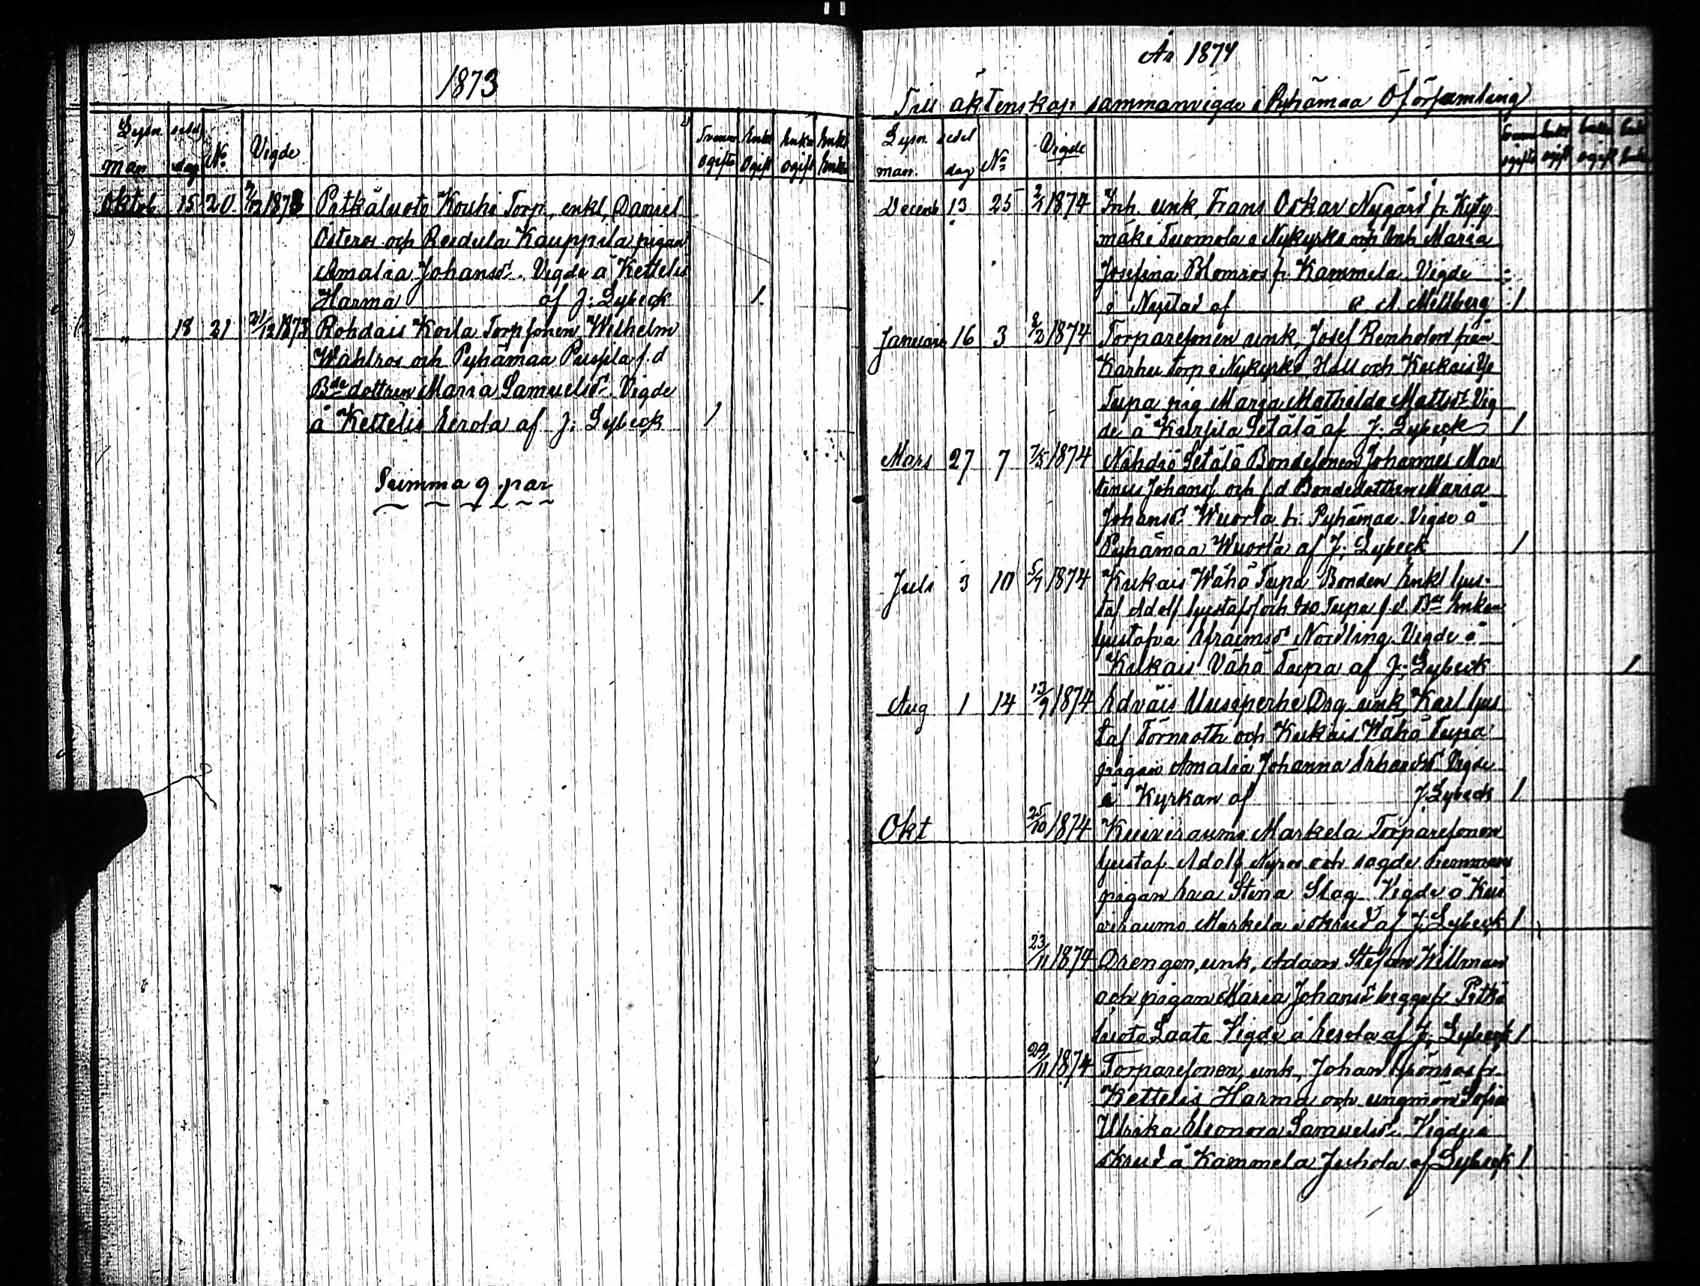 1873
Lysn sedel
man dag No Vigde
Oktob. 15 20 7/12 1873 Pitkäluoto Kouhi Torp. enkl. Daniel
Österos och Reidula Kauppila pigan
Amalia Johansdr. Vigde å Kettelis
Harma af J: Lybeck 1
" 18 21 21/12 1873 Rohdais Koila Torpsonen Wilhelm
Wahlros och Pyhämaa Pusila f.d
Bde dottren Maria Samuelsdr. Vigde
å Kettelis Eerola af J: Lybeck 1
Summa 9. par
År 1874
Till äktenskap sammanvigde i Pyhämaa Öförsamling
Lysn sedel
man. dag No Vigde
Decemb 13 25 2/1 1874 Inh. unk. Frans Oskar Nygård fr.
mäki Tuomola i Nykyrko och Inh Maria
Josefina Blomros fr. Kammela. Vigde
i Nystad af A. Millberg 1
Januari 16 3 2/2 1874 Torparesonen unk, Josef Renholm från
Karhu Torp i Nykyrko Höll och Kukais Yli
Tupa pig. Maria Mathilda Mattsdr. Vig
de å Kursila Setälä af J: Lybeck 1
Mars 27 7 7/5 1874 Nihdiö Setälä Bondesonen Johannes Mar
tinus Johanss. och f.d Bondedottren Maria
Johansdr. Wuorla fr. Pyhämaa. Vigde å
Pyhämaa Wuorla af J: Lybeck 1
Juli 3 10 5/7 1874 Kukais Wähä Tupa Bonden Enkl Gus-
taf Adolf Gustafss och Iso Tupa f.d. Bde Enkan
Gustafva Efraimsdr Nordling. Vigde å
Kukais Vähä Tupa af J: Lybeck 1
Aug 1 14 13/9 1874 Edväis Uusiperhe Drg unk, Karl Gus
taf Törnroth och Kukais Wähä Tupa
pigan Amalia Johanna Erhardsdr Vigde
i Kyrkan af J. Lybeck 1
Okt 25/10 1874 Kuiviraumo Markela Torparesonen
Gustaf Adolf Nyros och
pigan Eva Stina Slag. Vigde å Kui
viraumo Markela i skrud af J: Lybeck 1
23/11 1874 Drengen, unk, Adam Stefan Killman
och pigan Maria Johansdr begge fr Pitkä
luoto Laato Vigde å Eerola af J: Lybeck 1
29/11 1874 Torparesonen, unk, Johan Grönros fr.
Kettelis Harma och ungmön Sofia
Ulrika Eleonora Samuelsdr. Vigde i
skrud å Kammela Juhola af Lybeck 1